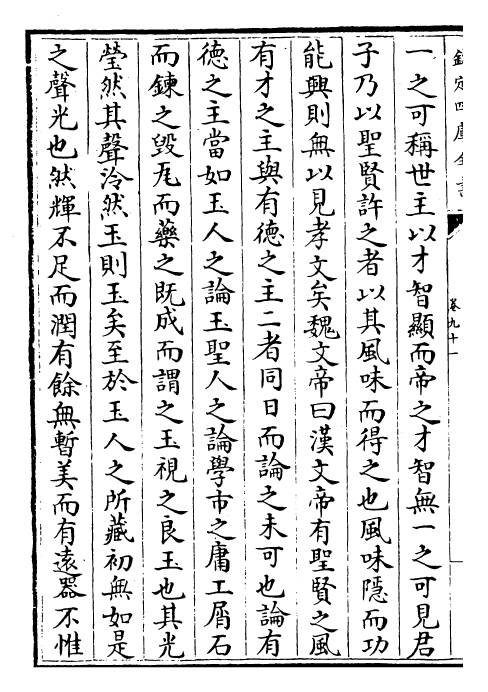 欽定四庫全書
卷九十一
一之可稱世主以才智顯而帝之才智無一之可見君
子乃以聖賢許之者以其風味而得之也風味隱而功
能興則無以見孝文矣魏文帝曰漢文帝有聖賢之風
有才之主與有德之主二者同日而論之未可也論有
德之主當如玉人之論玉聖人之論學市之庸工屑石
而鍊之毀瓦而藥之既成而謂之玉視之良玉也其光
瑩然其聲泠然玉則玉矣至於玉人之所藏初無如是
之聲光也然輝不足而潤有餘無暫美而有遠器不惟